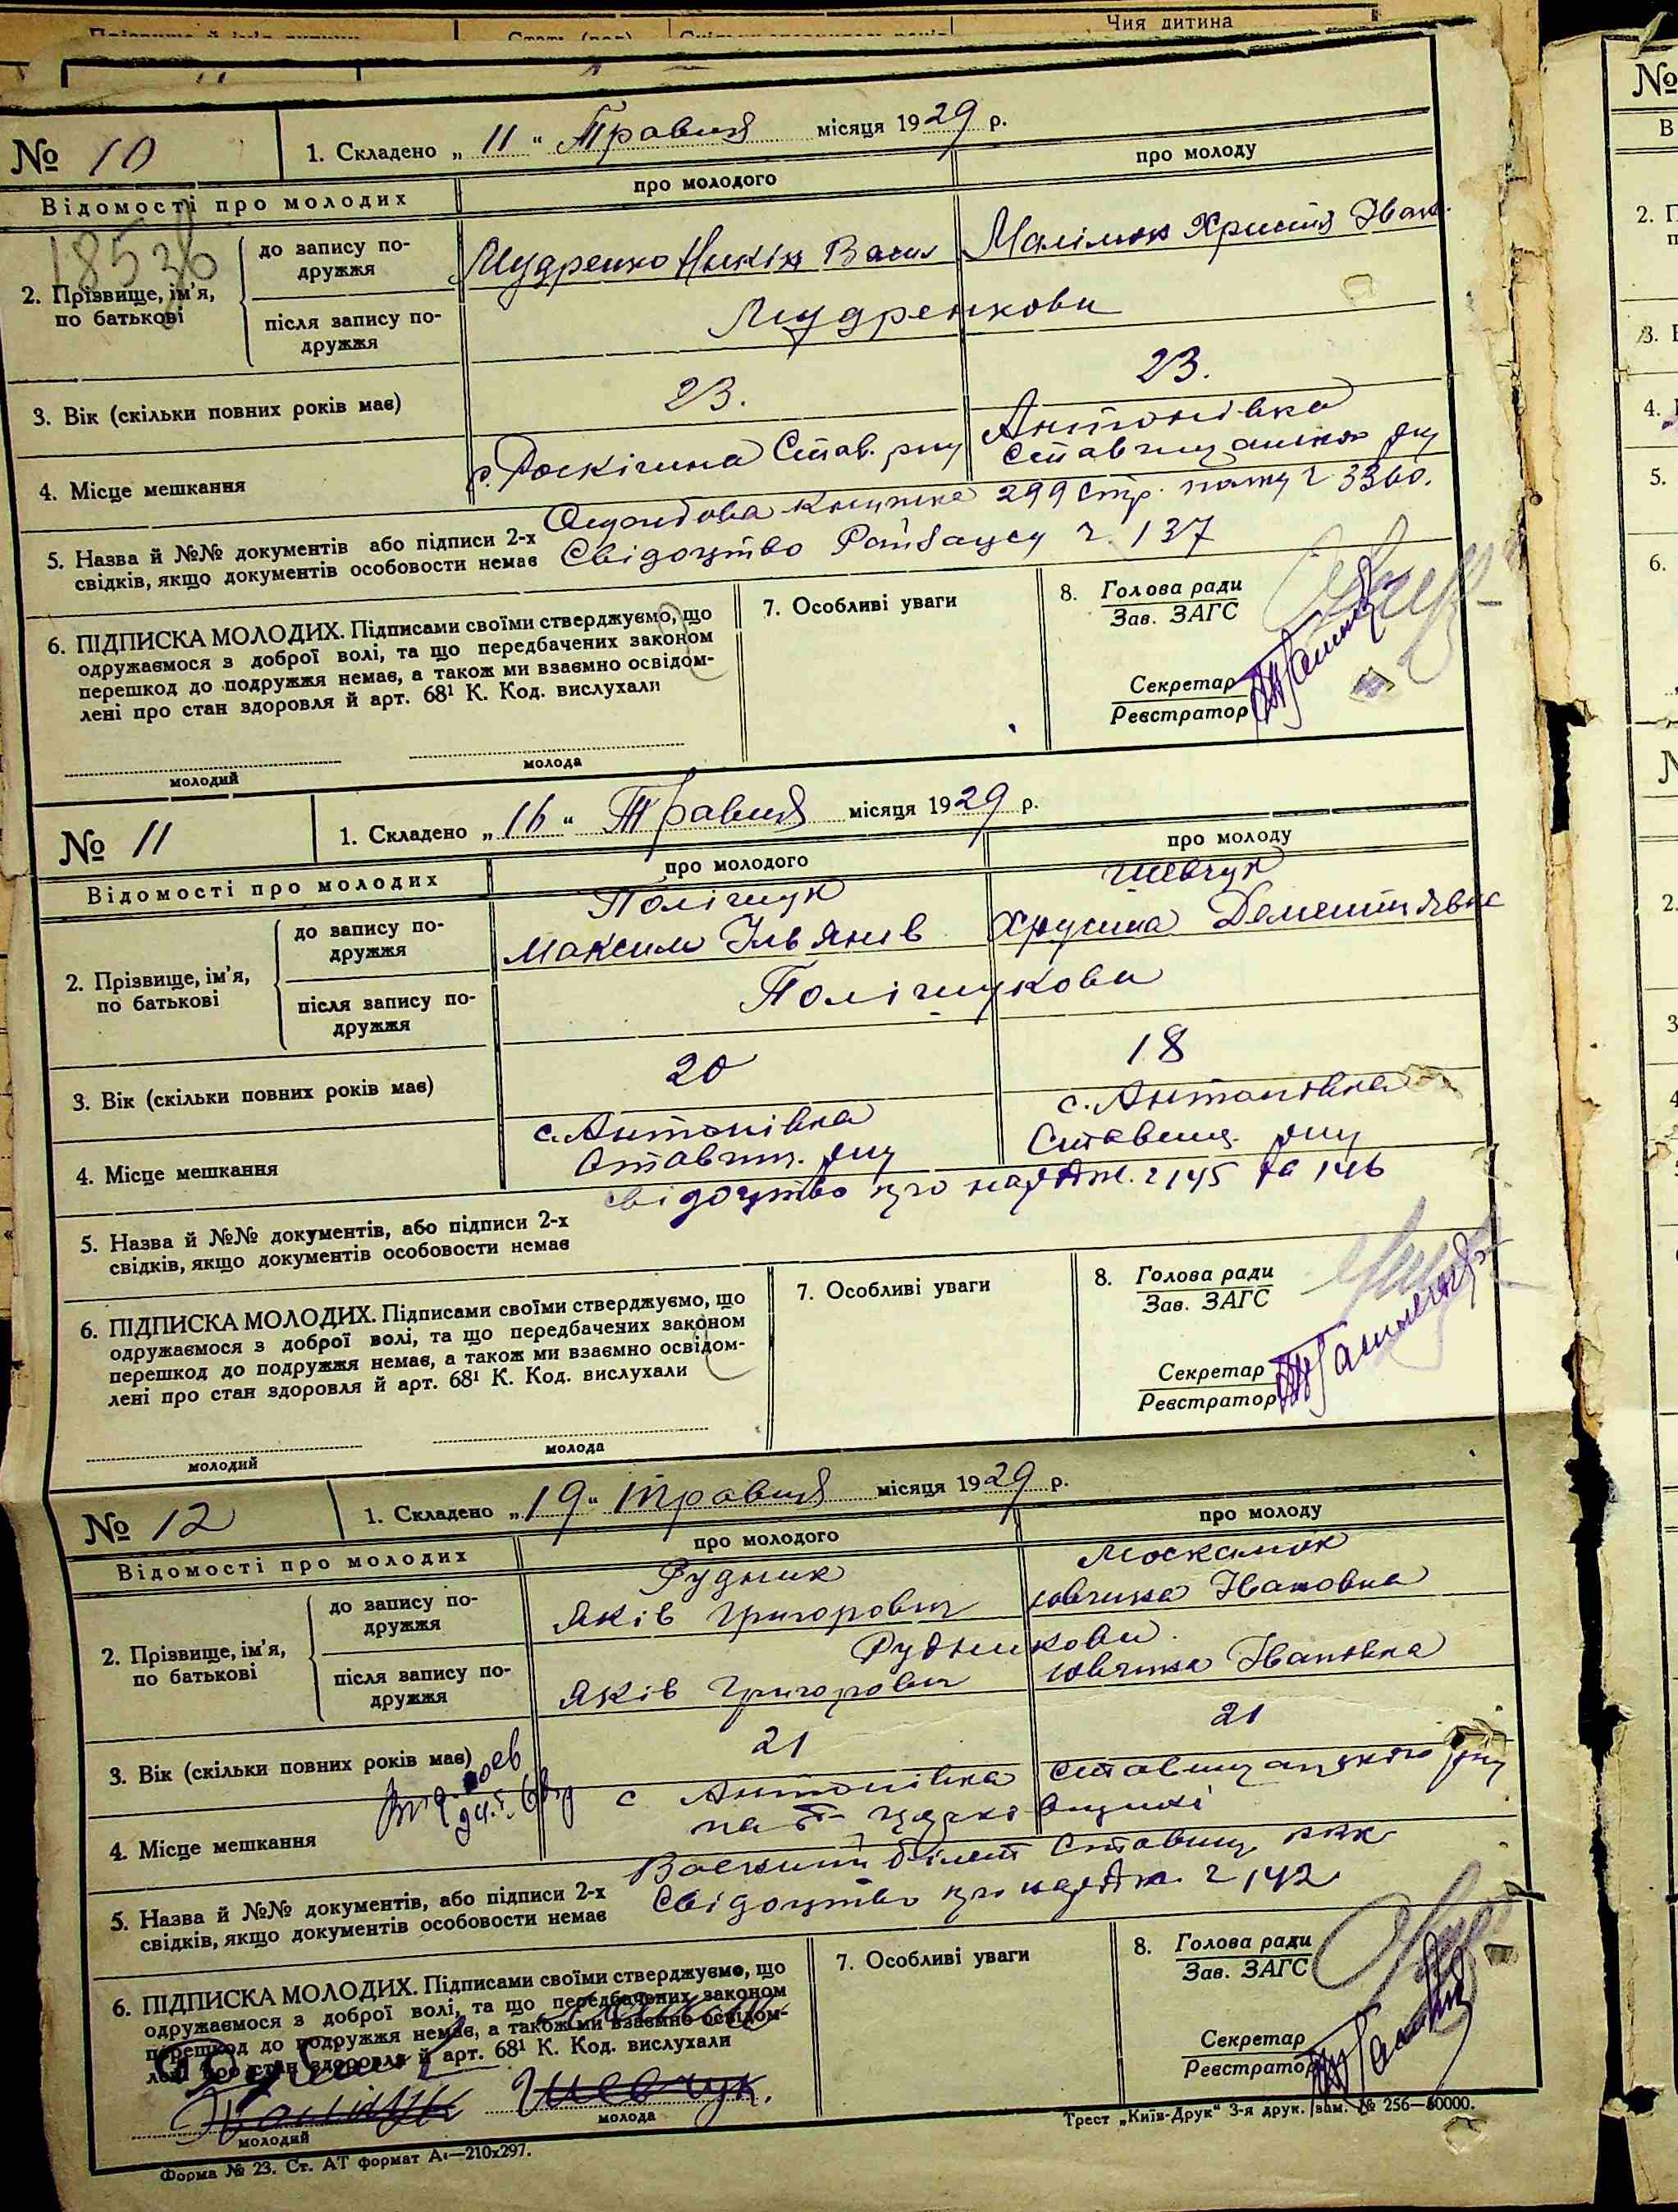 Чия дитина
№ 10
1. Складено „ 11 “ Травня місяця 1929 р.
Відомості про молодих
про молодого
про молоду
18536
2. Прізвище, ім'я, по батькові
до запису подружжя
Мудренко Никін Васил
Малімон Христя Іван.
після запису подружжя
Мудренкови
3. Вік (скільки повних років має)
23.
23.
4. Місце мешкання
Став. р-ну
Антонівка
5. Назва й №№ документів або підписи 2-х
свідків, якщо документів особовости немає
книжка 299 стр. 3360.
Свідоцтво ч. 137
6. ПІДПИСКА МОЛОДИХ. Підписами своїми стверджуємо, що
одружаємося з доброї волі, та що передбачених законом
перешкод до подружжя немає, а також ми взаємно освідом-
лені про стан здоровля й арт. 68¹ К. Код. вислухали
молодий
молода
7. Особливі уваги
8. Голова ради
Зав. ЗАГС
Секретар
Реєстратор
№ 11
1. Складено „ 16 “ Травня місяця 1929 р.
Відомості про молодих
про молодого
про молоду
2. Прізвище, ім'я, по батькові
до запису подружжя
Поліщук
Максим Ількянів
Шевчук
Хрусина Дементіявна
після запису подружжя
Поліщукови
3. Вік (скільки повних років має)
20
18
4. Місце мешкання
с. Антонівка
Ставищ. р-ну
с. Антонівка
Ставищ. р-ну
5. Назва й №№ документів, або підписи 2-х
свідків, якщо документів особовости немає
свідоцтво про народж. ч 145 та 146
6. ПІДПИСКА МОЛОДИХ. Підписами своїми стверджуємо, що
одружаємося з доброї волі, та що передбачених законом
перешкод до подружжя немає, а також ми взаємно освідом-
лені про стан здоровля й арт. 68¹ К. Код. вислухали
молодий
молода
7. Особливі уваги
8. Голова ради
Зав. ЗАГС
Секретар
Реєстратор
№ 12
1. Складено „ 19 “ Травня місяця 1929 р.
Відомості про молодих
про молодого
про молоду
2. Прізвище, ім'я, по батькові
до запису подружжя
Рудник
Яків Григорович
Москалюк
Ювчина Івановна
після запису подружжя
Рудникови
Яків Григорович
Ювчина Іванівна
3. Вік (скільки повних років має)
21
21
4. Місце мешкання
с Антонівка Ставищанського р-ну
5. Назва й №№ документів, або підписи 2-х
свідків, якщо документів особовости немає
Воєнний білет Ставищ. РВК
Свідоцтво про народж. ч 142
6. ПІДПИСКА МОЛОДИХ. Підписами своїми стверджуємо, що
одружаємося з доброї волі, та що передбачених законом
перешкод до подружжя немає, а також ми взаємно освідом-
лені про стан здоровля й арт. 68¹ К. Код. вислухали
Шевчук.
молодий
молода
7. Особливі уваги
8. Голова ради
Зав. ЗАГС
Секретар
Реєстратор
Форма № 23. Ст. АТ формат А₄—210х297.
Трест „Київ-Друк“ 3-я друк. зам. № 256—50000.